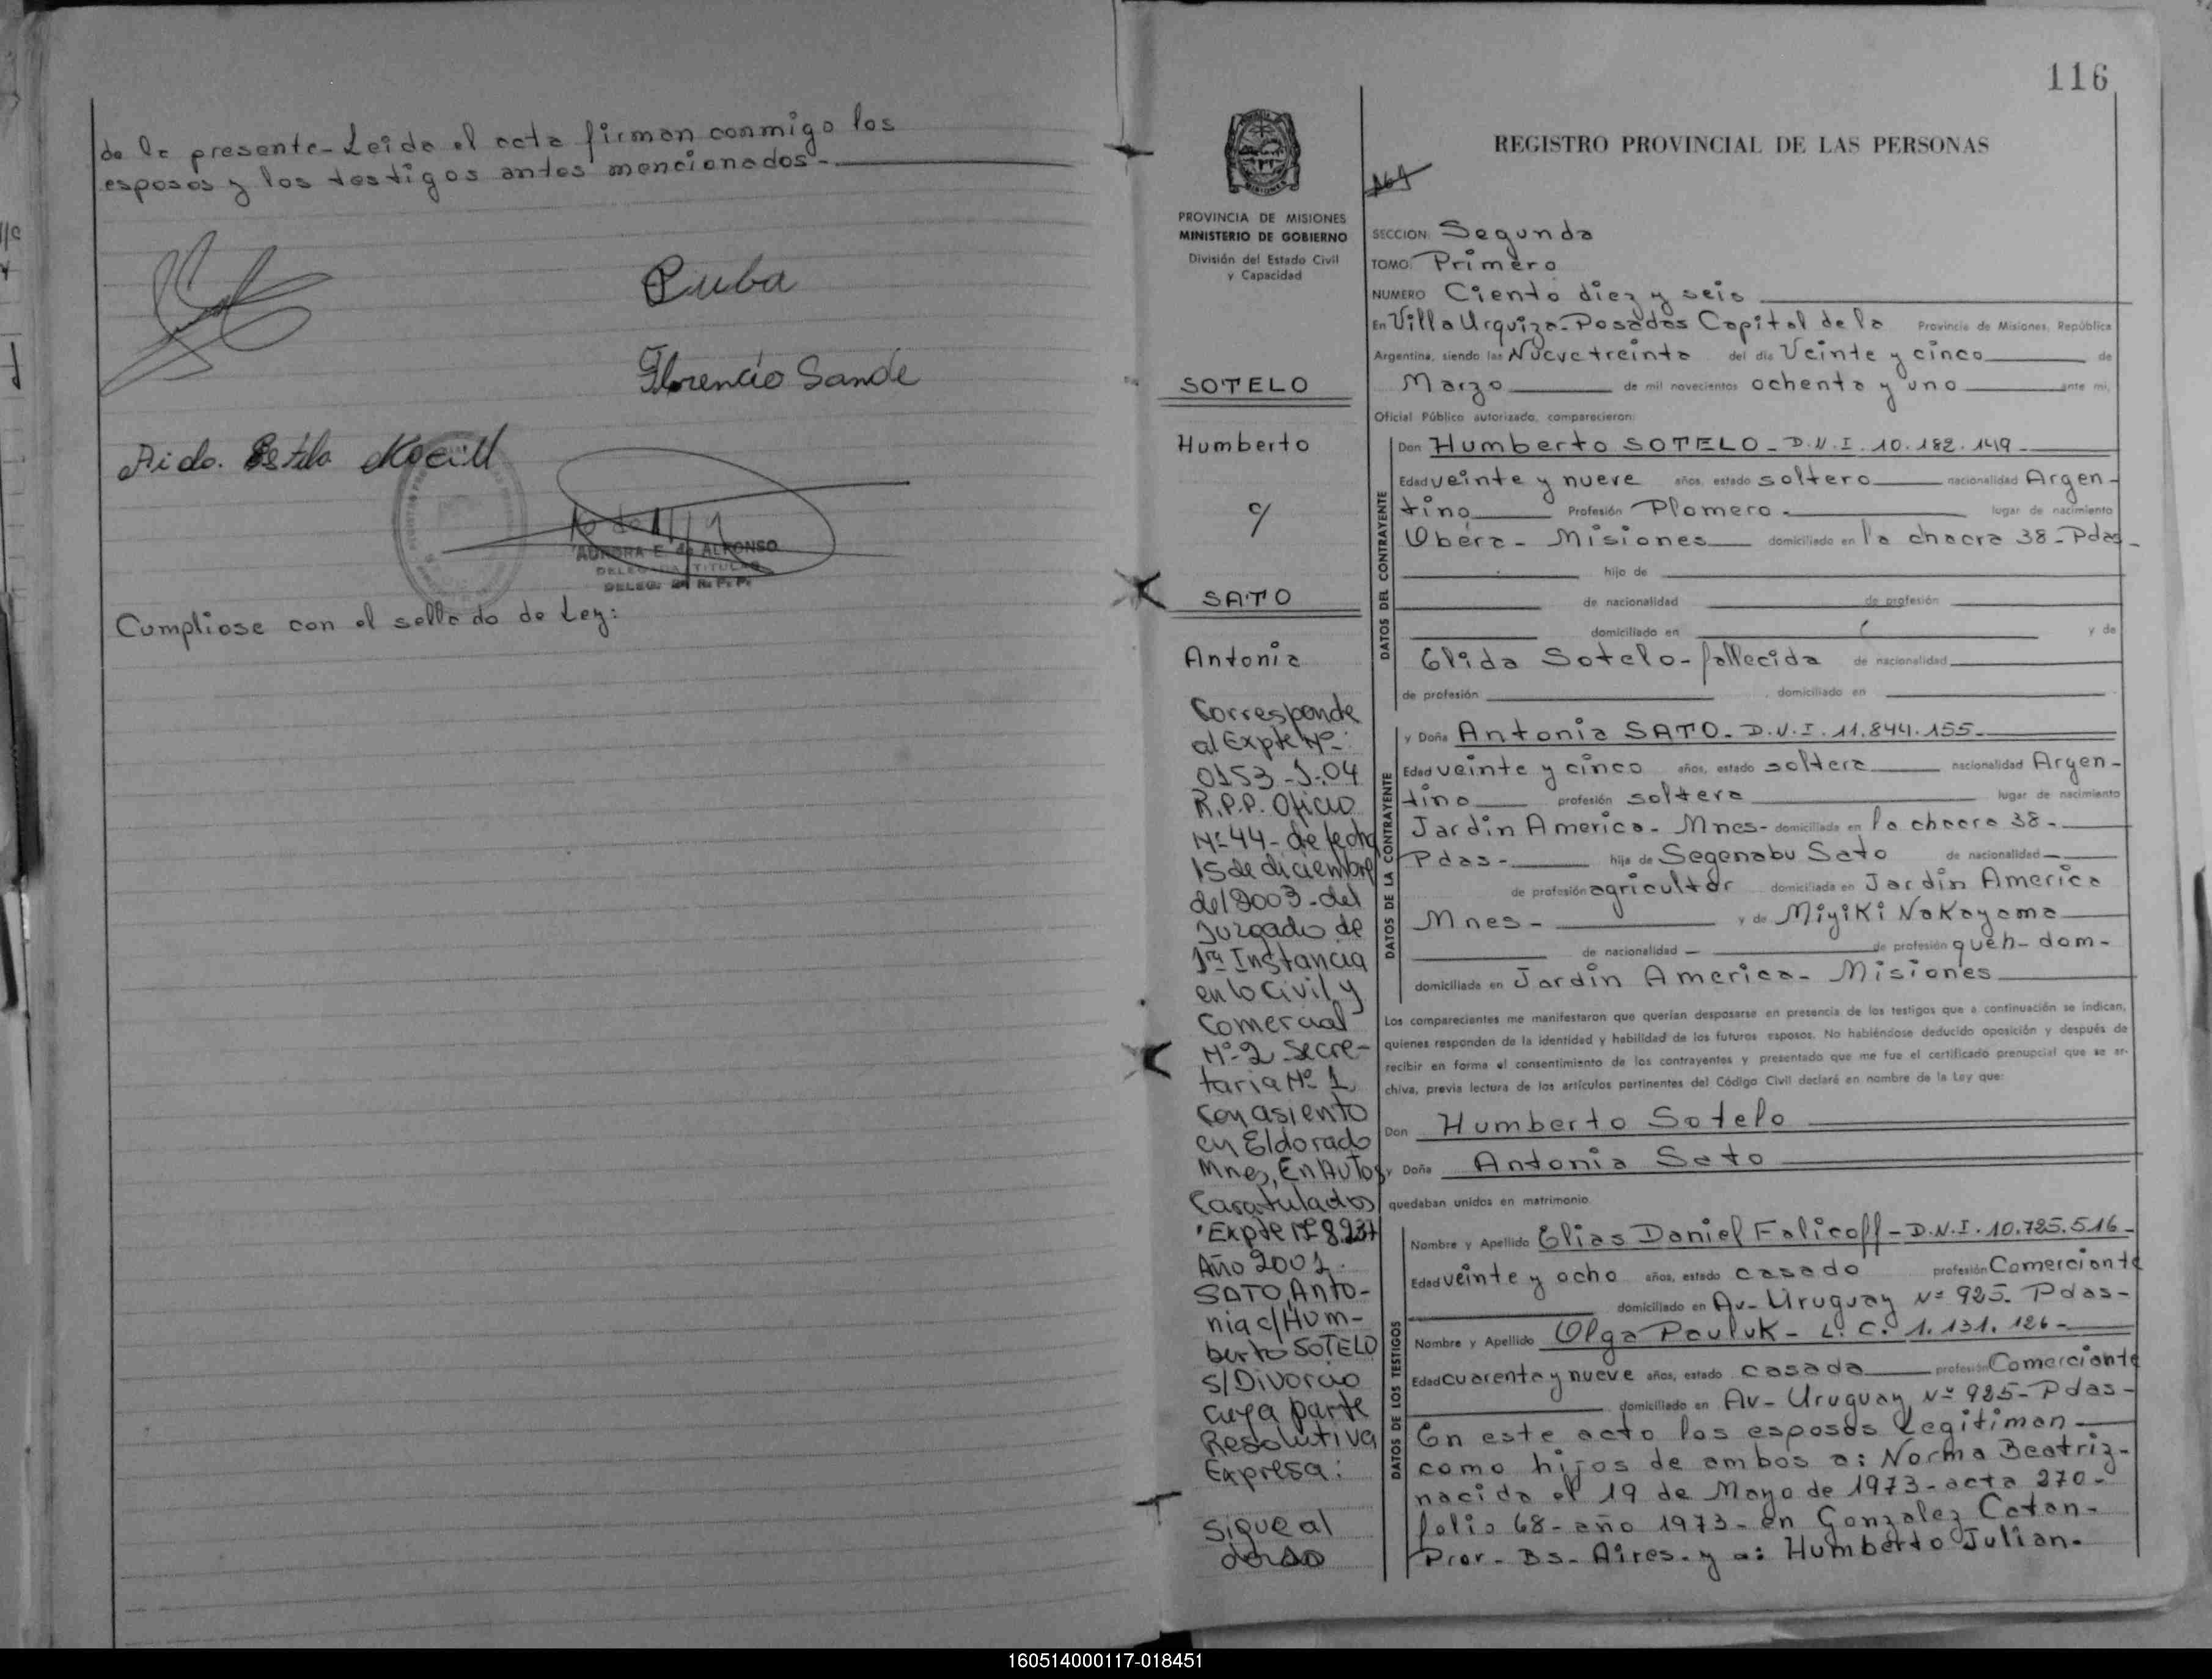 de la presente- Leida el acta firman conmigo los
esposos y los testigos antes mencionados-.
Florencio Sande
AURORA E. de ALFONSO
DELEGADA TITULAR
DELEG. 2ª R. P. P.
Cumpliose con el sellado de Ley:
116
PROVINCIA DE MISIONES
MINISTERIO DE GOBIERNO
División del Estado Civil
y Capacidad
SOTELO
Humberto
c/
SATO
Antonia
Corresponde
al Expte Nº-:
0153-J-04
R.P.P. Oficio
Nº 44- de fecha
15 de diciembre
del 2003-del
Juzgado de
1ra Instancia
en lo Civil y
Comercial
Nº-2 Secre-
taria Nº 1
con asiento
en Eldorado
Mnes, En Autos
Caratulados
Año 2001.
SATO, Anto-
nia c/ Hum-
berto SOTELO
s/ Divorcio
cuya parte
Resolutiva
Expresa:
Sigue al
dorso
REGISTRO PROVINCIAL DE LAS PERSONAS
SECCION: Segunda
TOMO: Primero
NUMERO Ciento diez y seis
En Villa Urquiza-Posadas Capital de la Provincia de Misiones, República
Argentina, siendo las Nueve treinta del día Veinte y cinco de
Marzo de mil novecientos ochenta y uno ante mi,
Oficial Público autorizado, comparecieron:
DATOS DEL CONTRAYENTE
Don Humberto SOTELO- D.N.I. 10.182.149-
Edad veinte y nueve años, estado soltero nacionalidad Argen-
tino Profesión Plomero- lugar de nacimiento
Obera- Misiones domiciliado en la chacra 38-Pdas-
hijo de
de nacionalidad de profesión
domiciliado en y de
Elida Sotelo-fallecida de nacionalidad
de profesión domiciliado en
DATOS DE LA CONTRAYENTE
y Doña Antonia SATO- D.N.I. 11.844.155-
Edad veinte y cinco años, estado soltera nacionalidad Argen-
tina profesión soltera lugar de nacimiento
Jardin America- Mnes- domiciliada en la chacra 38-
Pdas- hija de Segenabu Sato de nacionalidad
de profesión agricultor domiciliado en Jardin America
Mnes- y de Miyiki Nakayama
de nacionalidad de profesión queh-dom-
domiciliada en Jardin America- Misiones
Los comparecientes me manifestaron que querían desposarse en presencia de los testigos que a continuación se indican,
quienes responden de la identidad y habilidad de los futuros esposos. No habiéndose deducido oposición y después de
recibir en forma el consentimiento de los contrayentes y presentado que me fue el certificado prenupcial que se ar-
chiva, previa lectura de los artículos pertinentes del Código Civil declaré en nombre de la Ley que:
Don Humberto Sotelo
y Doña Antonia Sato
quedaban unidos en matrimonio.
DATOS DE LOS TESTIGOS
Nombre y Apellido Elias Daniel Falicoff- D.N.I. 10.785.516-
Edad veinte y ocho años, estado casado profesión Comerciante
domiciliado en Av- Uruguay Nº 925. Pdas-
Nombre y Apellido Olga Pauluk- L. C. 1.131.126-
Edad cuarenta y nueve años, estado casada profesión Comerciante
domiciliado en Av- Uruguay Nº 925-Pdas-
En este acto los esposos Legitiman
como hijos de ambos a: Norma Beatriz-
nacida el 19 de Mayo de 1973-acta 270-
folio 68-año 1973-en Gonzalez Catan-
Prov- Bs- Aires- y a: Humberto Julian-
160514000117-018451